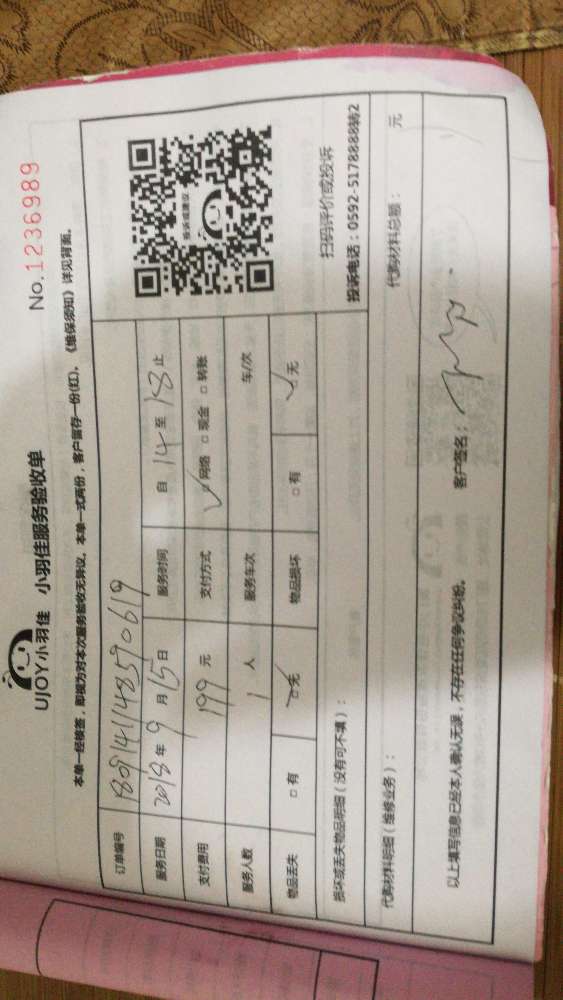 No.1236989
UJOY小羽佳 小羽佳服务验收单
本单一经核签，即视为对本次服务验收无异议。本单一式两份，客户留存一份(红)，《维保须知》详见背面。
订单编号 1809141148590619
服务日期 2018年9月15日 服务时间 自14至18止
支付费用 199元 支付方式 ☑网络 □现金 □转账
服务人数 1人 服务车次 车/次
物品丢失 □有 ☑无 物品损坏 □有 ☑无
投诉或建议
扫码评价或投诉
投诉电话：0592-5178888转2
损坏或丢失物品明细（没有可不填）：
代购材料明细（维修业务）： 代购材料总额： 元
以上填写信息已经本人确认无误，不存在任何争议纠纷。 客户签名：